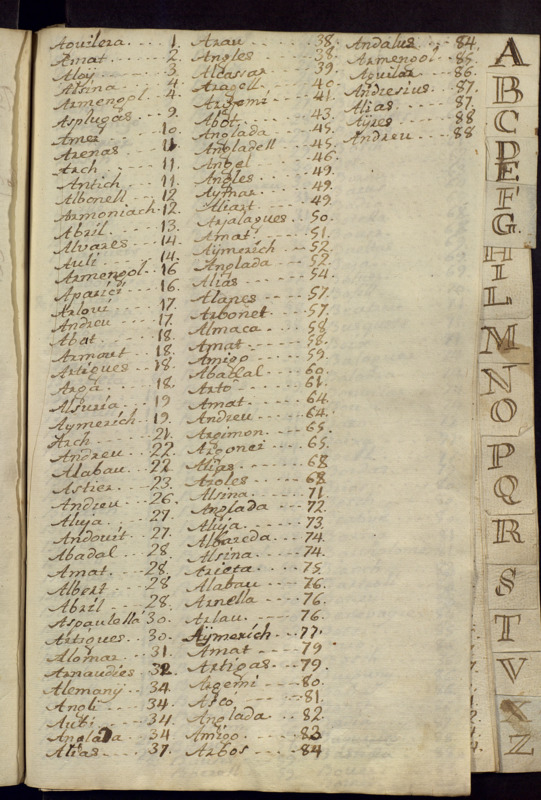 Aguilera . 1.
Amat . . . 2.
Aloy . . . 3.
Alsina . . 4
Armengol . 4.
Asplugas . . 9.
Amer . . . 10.
Arenas . . 11
Arch . . . 11.
Antich . . 11.
Albonell . 12
Armoniach . 12.
Abril . . . 13.
Alvares . . 14.
Auli . . . 14.
Armengol . 16
Aparici . . 16.
Arlovi . . 17.
Andreu . . 17.
Abat . . . 18.
Armout . . 18.
Artigues . . 18.
Arga . . . 18.
Alsuria . . 19
Aymerich . . 19.
Arch . . . 21.
Andreu . . 22.
Alabau . . 22
Astier . . 23.
Andreu . . 26.
Aluja . . . 27.
Andouit . . 27.
Abadal . . 28.
Amat . . . 28.
Albert . . 28
Abril . . . 28.
Aspaulella 30.
Artigues . . 30.
Alomar . . 31.
Arnaudies . . 32.
Alemany . . 34.
Angli . . . 34.
Aubi . . . 34
Anglada . . 34
Alias . . . 37.
Arau . . . 38.
Angles . . 38.
Alcassar . . 39.
Aragell . . 40.
Argemi . . 41.
Abot . . . 43.
Anglada . . 45.
Angladell . . 45.
Angel . . . 46.
Angles . . 49.
Aymar . . 49.
Aliart . . 49.
Arjalagues . . 50.
Amat . . . 51.
Aymerich . . 52.
Anglada . . 52.
Alias . . . 54.
Alanes . . 57.
Arbonet . . 57.
Almaca . . 58
Amat . . . 58.
Amigo . . 59.
Abadal . . 60.
Arto . . . 61.
Amat . . . 64.
Andreu . . 64.
Argimon . . 65.
Argoner . . 65.
Alias . . . 68
Aroles . . 68
Alsina . . 71.
Anglada . . 72.
Aluja . . . 73.
Albareda . . 74.
Alsina . . 74.
Arieta . . 75.
Alabau . . 76.
Arnella . . 76.
Arlau . . . 76.
Aymerich . . 77.
Amat . . . 79
Artigas . . 79.
Argemi . . 80.
Asco . . . 81.
Anglada . . 82.
Amigo . . 83
Arbos . . . 84
Andalus . . 84.
Armengol . . 85.
Aguilar . . 86.
Andresius . . 87.
Alias . . . 87.
Ayres . . . 88
Andreu . . 88
A
B
C
D
E
F
G.
H
I
L
M
N
O
P
Q
R
S
T
V
X
Z